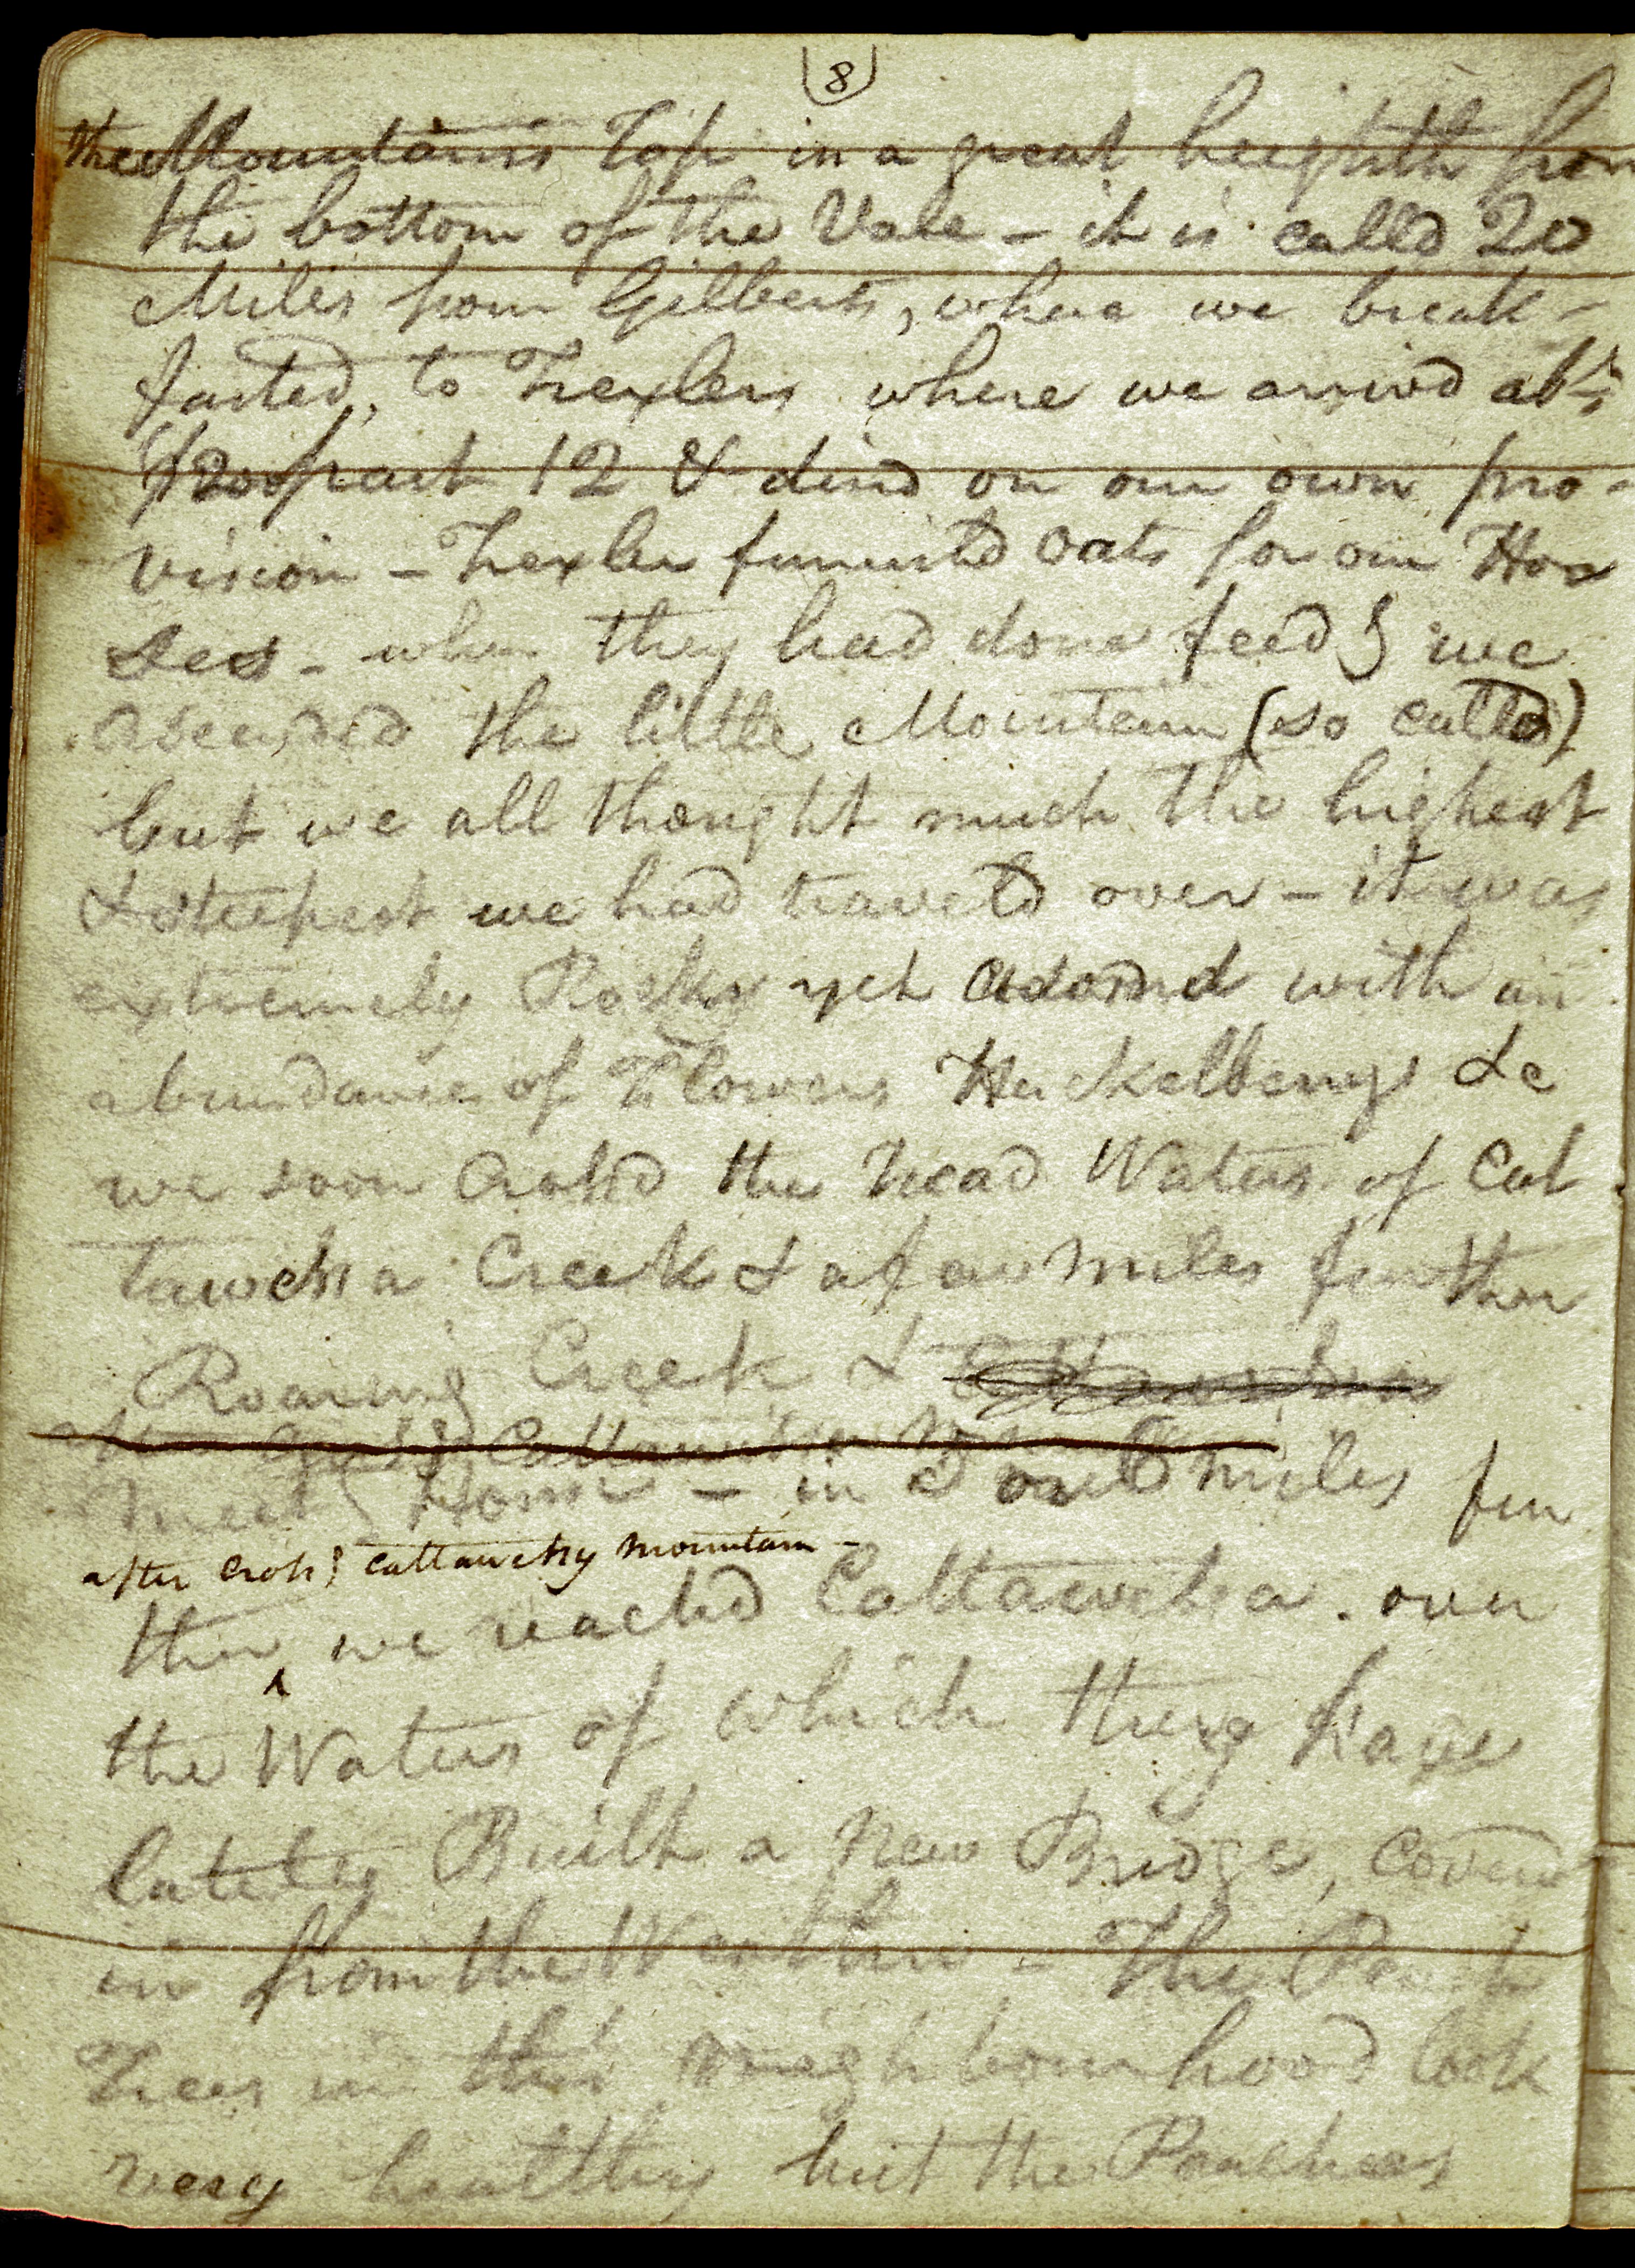 8
the Mountains Top in a great heighth from
the bottom of the Vale - it is calld 20
Miles from Gilberts, where we break-
fasted, to Trexlers where we arrivd abt
past 12 & dind on our own pro-
vision - Trexler furnishd oats for our Hor
ses - when they had done feedg we
ascended the little Mountain (so calld)
but we all thought much the highest
& steepest we had traveld over - it was
extremely Rocky yet adornd with an
abundance of Flowers Huckelberrys &c
we soon Crossd the head Waters of Cat
tawissa Creek & a few miles further
Roaring Creek &
meetg House - in 3 or 4 miles fur
after Crossg Cattawissy mountain -
ther we reachd Cattawissa . over
the Waters of which they have
lately Built a New Bridge, coverd
in from the Weather - The Peach
Trees in this neighbourhood look
very healthy but the Peaches